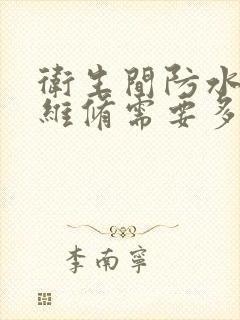 衛生間防水
維脩需要多
李南寧